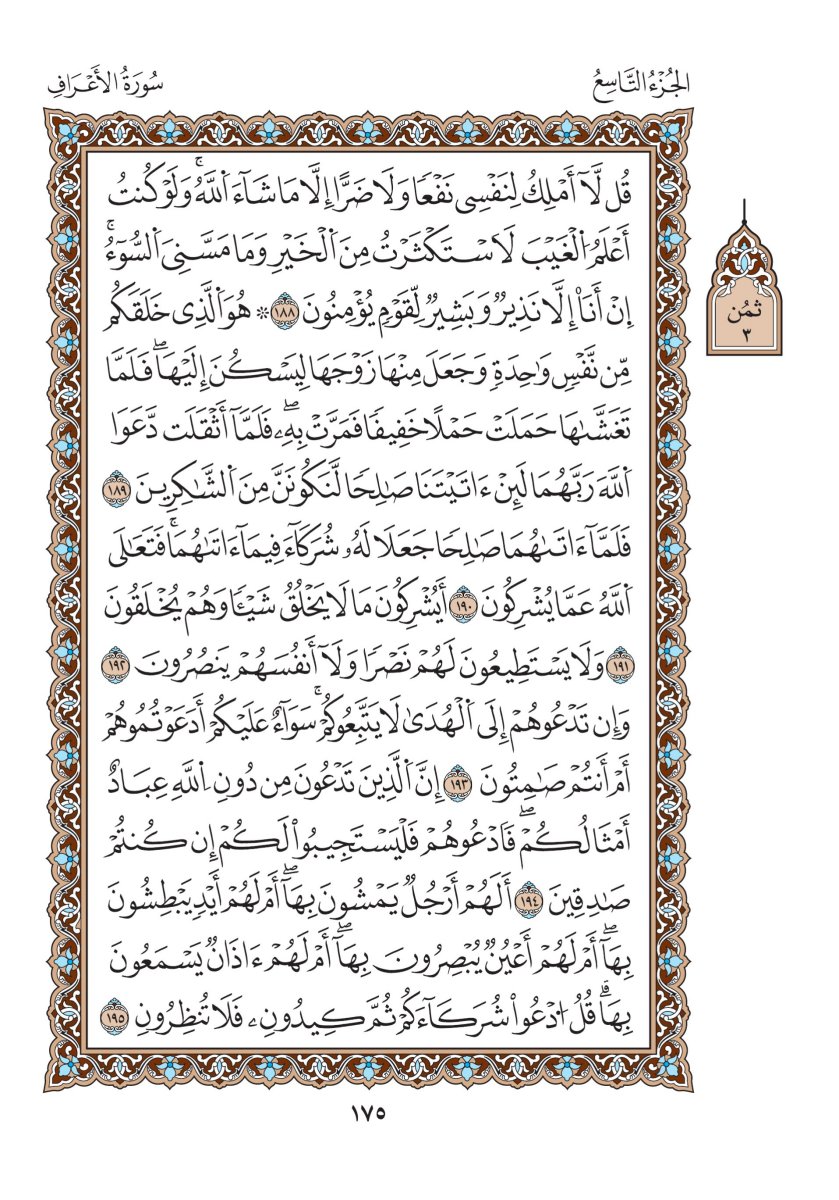 الجُزْءُ التَّاسِعُ
سُورَةُ الأَعْرَافِ
قُل لَّآ أَمْلِكُ لِنَفْسِي نَفْعًا وَلَا ضَرًّا إِلَّا مَا شَآءَ اَ۬للَّهُۚ وَلَوْ كُنتُ
أَعْلَمُ اُ۬لْغَيْبَ لَاسْتَكْثَرْتُ مِنَ اَ۬لْخَيْرِ وَمَا مَسَّنِيَ اَ۬لسُّوٓءُۚ
إِنْ أَنَا۠ إِلَّا نَذِيرٌ وَبَشِيرٌ لِّقَوْمٍ يُؤْمِنُونَ ١٨٨ ۞ هُوَ اَ۬لَّذِي خَلَقَكُم
مِّن نَّفْسٍ وَٰحِدَةٍ وَجَعَلَ مِنْهَا زَوْجَهَا لِيَسْكُنَ إِلَيْهَاۖ فَلَمَّا
تَغَشَّىٰهَا حَمَلَتْ حَمْلًا خَفِيفًا فَمَرَّتْ بِهِۦۖ فَلَمَّآ أَثْقَلَت دَّعَوَا
اَ۬للَّهَ رَبَّهُمَا لَئِنْ ءَاتَيْتَنَا صَٰلِحًا لَّنَكُونَنَّ مِنَ اَ۬لشَّٰكِرِينَ ١٨٩
فَلَمَّآ ءَاتَىٰهُمَا صَٰلِحًا جَعَلَا لَهُۥ شُرَكَآءَ فِيمَآ ءَاتَىٰهُمَاۚ فَتَعَٰلَى
اَ۬للَّهُ عَمَّا يُشْرِكُونَ ١٩٠ أَيُشْرِكُونَ مَا لَا يَخْلُقُ شَيْـًٔا وَهُمْ يُخْلَقُونَ
١٩١ وَلَا يَسْتَطِيعُونَ لَهُمْ نَصْرًا وَلَآ أَنفُسَهُمْ يَنصُرُونَ ١٩٢
وَإِن تَدْعُوهُمْ إِلَى اَ۬لْهُدَىٰ لَا يَتَّبِعُوكُمْۚ سَوَآءٌ عَلَيْكُمْ أَدَعَوْتُمُوهُمْ
أَمْ أَنتُمْ صَٰمِتُونَ ١٩٣ إِنَّ اَ۬لَّذِينَ تَدْعُونَ مِن دُونِ اِ۬للَّهِ عِبَادٌ
أَمْثَالُكُمْۖ فَادْعُوهُمْ فَلْيَسْتَجِيبُوا۟ لَكُمْ إِن كُنتُمْ
صَٰدِقِينَ ١٩٤ أَلَهُمْ أَرْجُلٌ يَمْشُونَ بِهَآۖ أَمْ لَهُمْ أَيْدٍ يَبْطِشُونَ
بِهَآۖ أَمْ لَهُمْ أَعْيُنٌ يُبْصِرُونَ بِهَآۖ أَمْ لَهُمْ ءَاذَانٌ يَسْمَعُونَ
بِهَاۗ قُلُ اُ۟دْعُوا۟ شُرَكَآءَكُمْ ثُمَّ كِيدُونِۦ فَلَا تُنظِرُونِ ١٩٥
ثمُن
٣
١٧٥